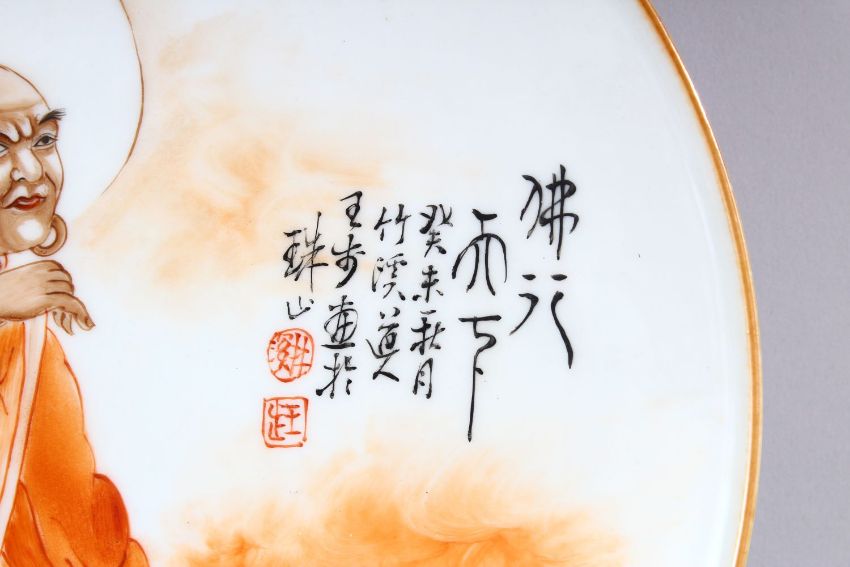 佛行
天下
癸未秋月
竹溪道人
王步画於
珠山